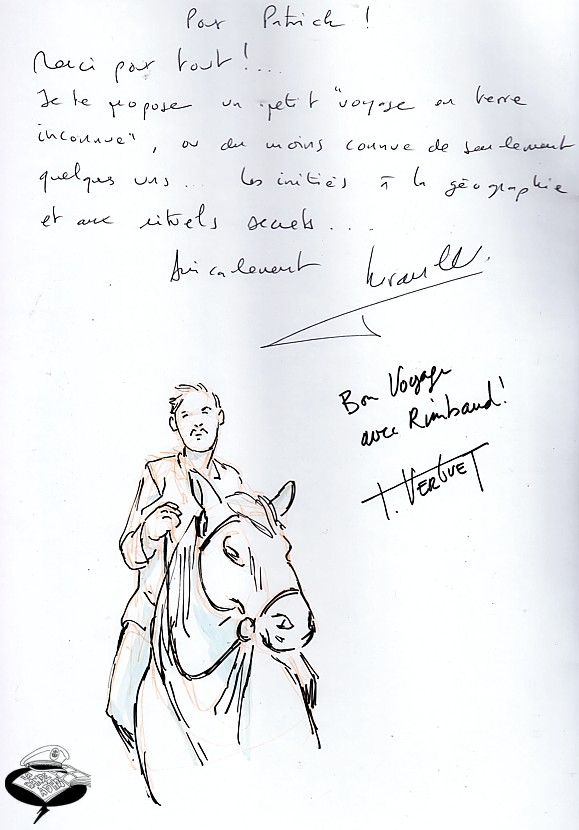 Pour Patrick !
Merci pour tout !...
Je te propose un petit "voyage en terre
inconnue", ou du moins connue de seulement
quelques uns... les initiés à la géographie
et aux rituels secrets....
Amicalement
Bon Voyage
avec Rimbaud!
T. VERGUET